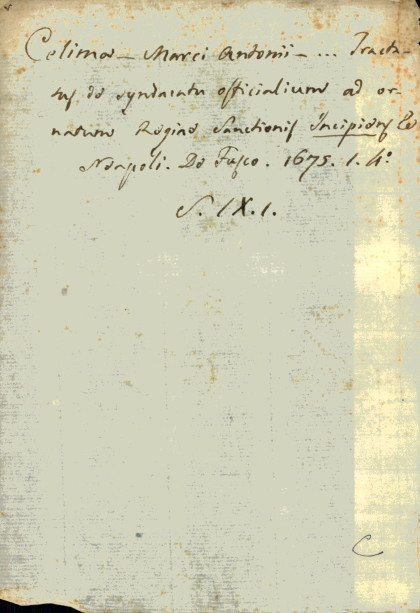 Celimæ – Marci Antonii – ... Tracta-
tus de syndacatu officialium ad or-
natum Regiae Sanctionis Incipiens Le
Neapoli. De Fusco. 1675. 1. 4°
S. IX. 1.
C